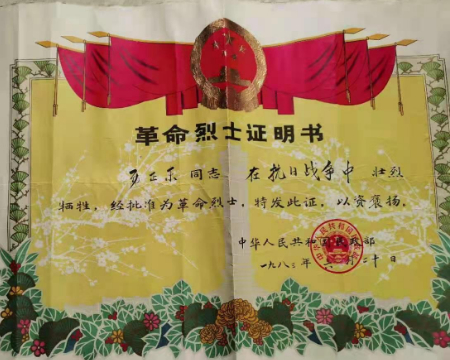 革命烈士证明书
同志 在抗日战争中 壮烈
牺牲，经批准为革命烈士，特发此证，以资褒扬。
中华人民共和国民政部
一九八三年 六月 二十日